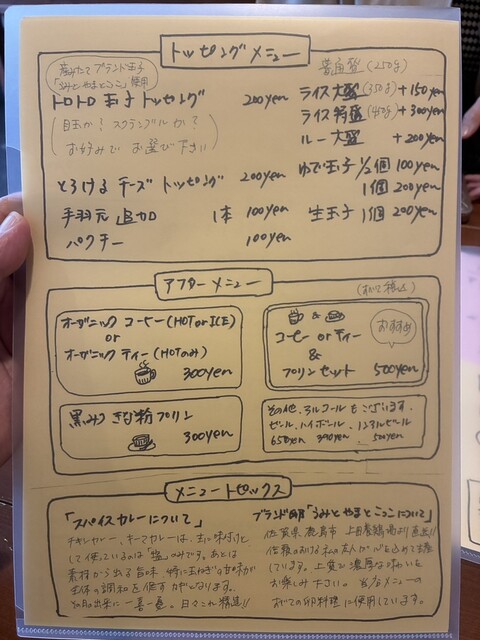 トッピングメニュー
産みたてブランド玉子
「うみとやまとこっこ」使用
トロトロ玉子トッピング 200yen
(目玉か?スクランブルか?
お好みでお選び下さい)
とろけるチーズトッピング 200yen
手羽元追加 1本 100yen
パクチー 100yen
普通盛(250g)
ライス大盛(350g)+150yen
ライス特盛(450g)+300yen
ルー大盛 +200yen
ゆで玉子 1/2個 100yen
1個 200yen
生玉子 1個 200yen
アフターメニュー
(すべて税込)
オーガニックコーヒー(HOT or ICE)
or
オーガニックティー(HOTのみ)
300yen
&
コーヒー or ティー
&
プリンセット 500yen
おすすめ
黒みつきな粉プリン
300yen
その他、アルコールもございます。
ビール、ハイボール、ノンアルビール
650yen 390yen 500yen
メニュートピックス
「スパイスカレーについて」
チキンカレー、キーマカレーは、主に味付けと
して使っているのは「塩」のみです。あとは
素材から出る旨味、特に玉ねぎの甘味が
全体の調和を促すカギとなります。
一喜一憂。日々これ精進!!
ブランド卵「うみとやまとこっこについて」
佐賀県鹿島市
しています。上質で濃厚な味わいを
お楽しみ下さい。当店メニューの
すべての卵料理に使用しています。